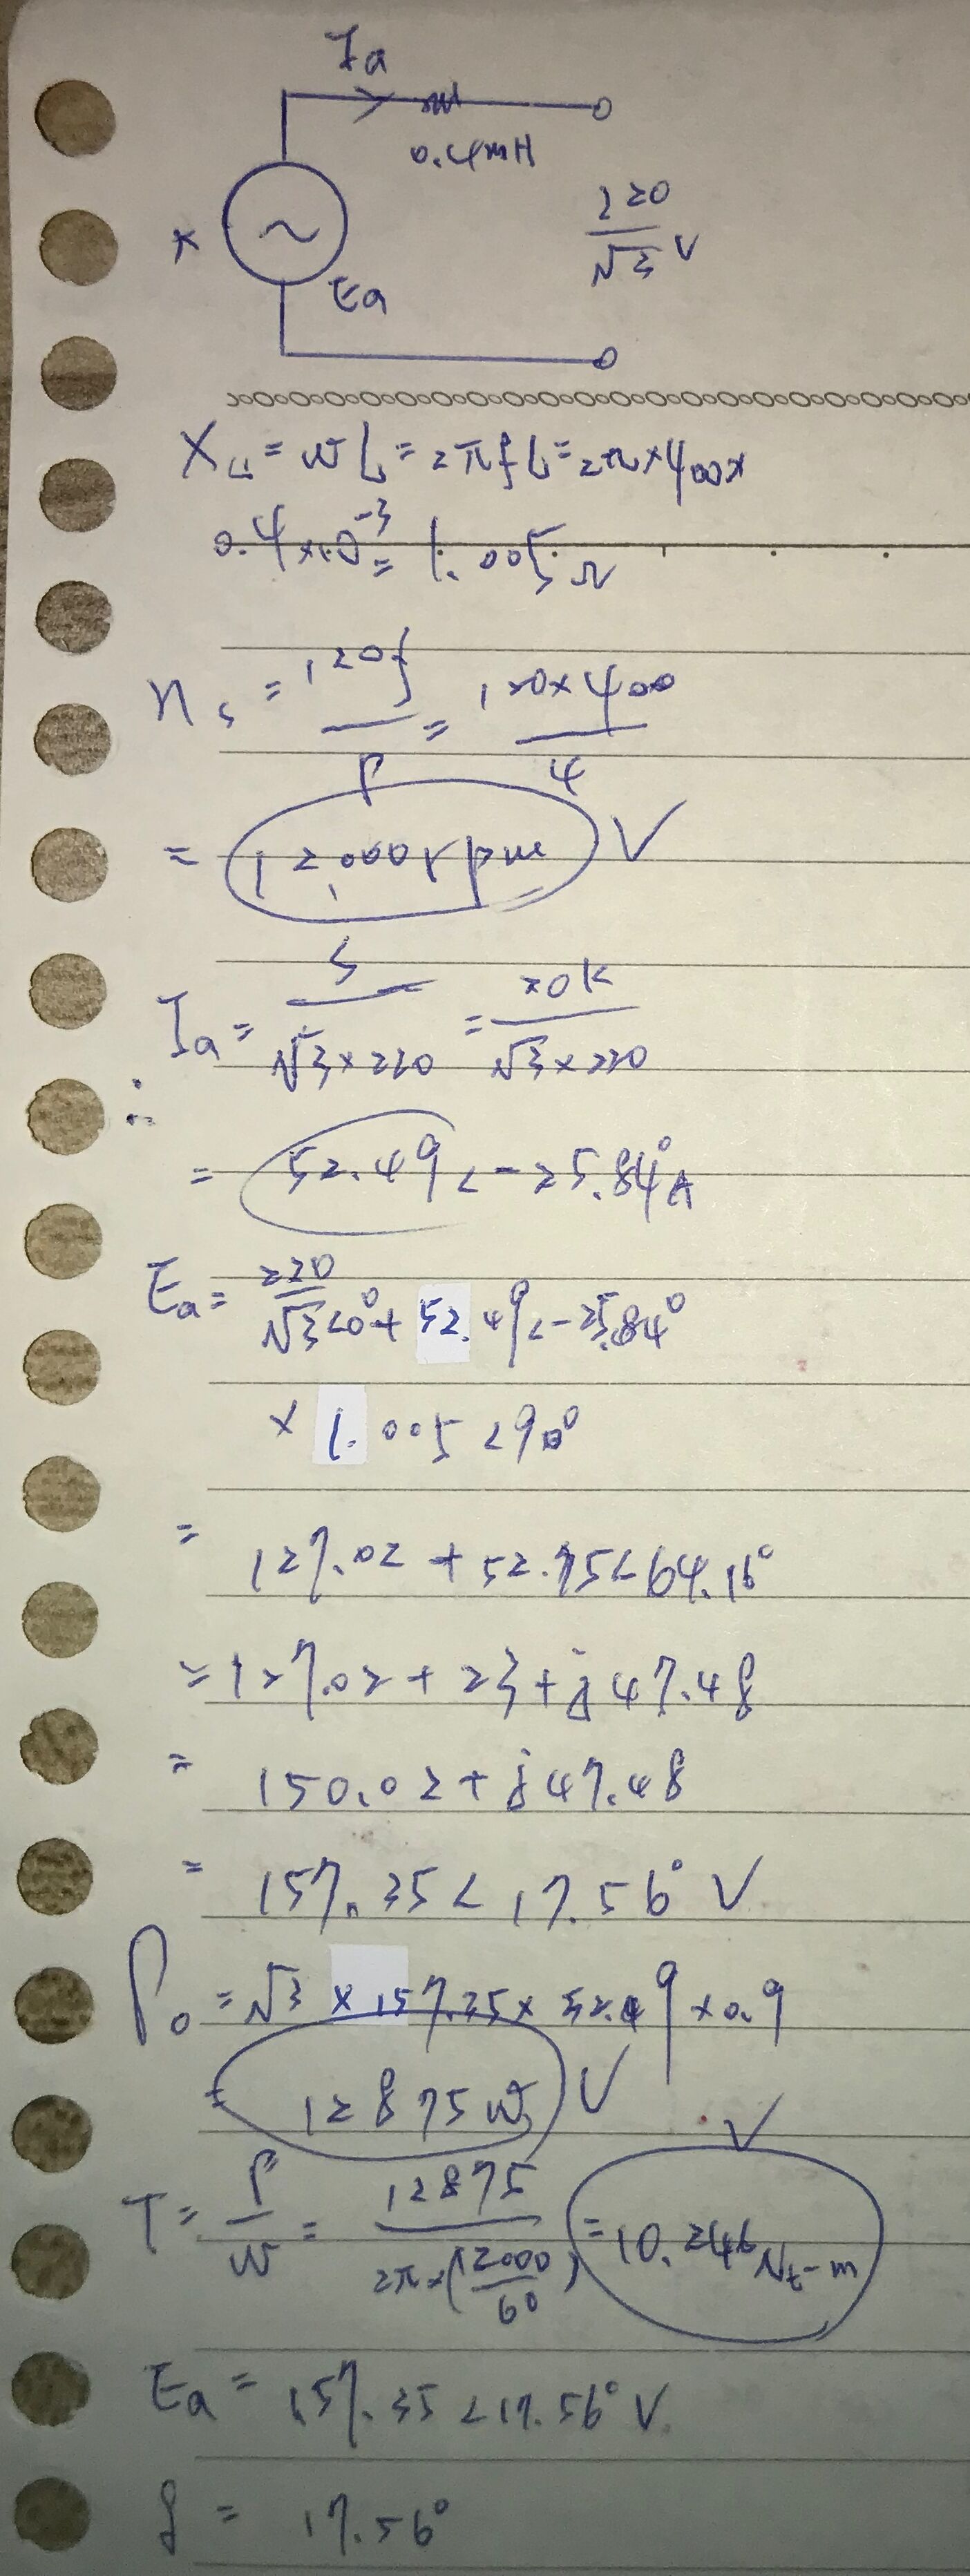 Ia
0.4mH
220/√3 V
Ea
XL = ωL = 2πfL = 2π×400×
0.4×10⁻³ = 1.005Ω
ns = 120f/P = 120×400/4
= 12,000rpm ✓
Ia = S/(√3×220) = 20k/(√3×220)
∴
= 52.49∠-25.84°A
Ea = 220/√3∠0° + 52.49∠-25.84°
× 1.005∠90°
= 127.02 + 52.75∠64.16°
= 127.02 + 23 + j47.48
= 150.02 + j47.48
= 157.35∠17.56° V
Po = √3 × 157.35 × 52.49 × 0.9
= 12875W ✓
T = P/ω = 12875/(2π×(12000/60)) = 10.246 Nt-m ✓
Ea = 157.35∠17.56° V
δ = 17.56°